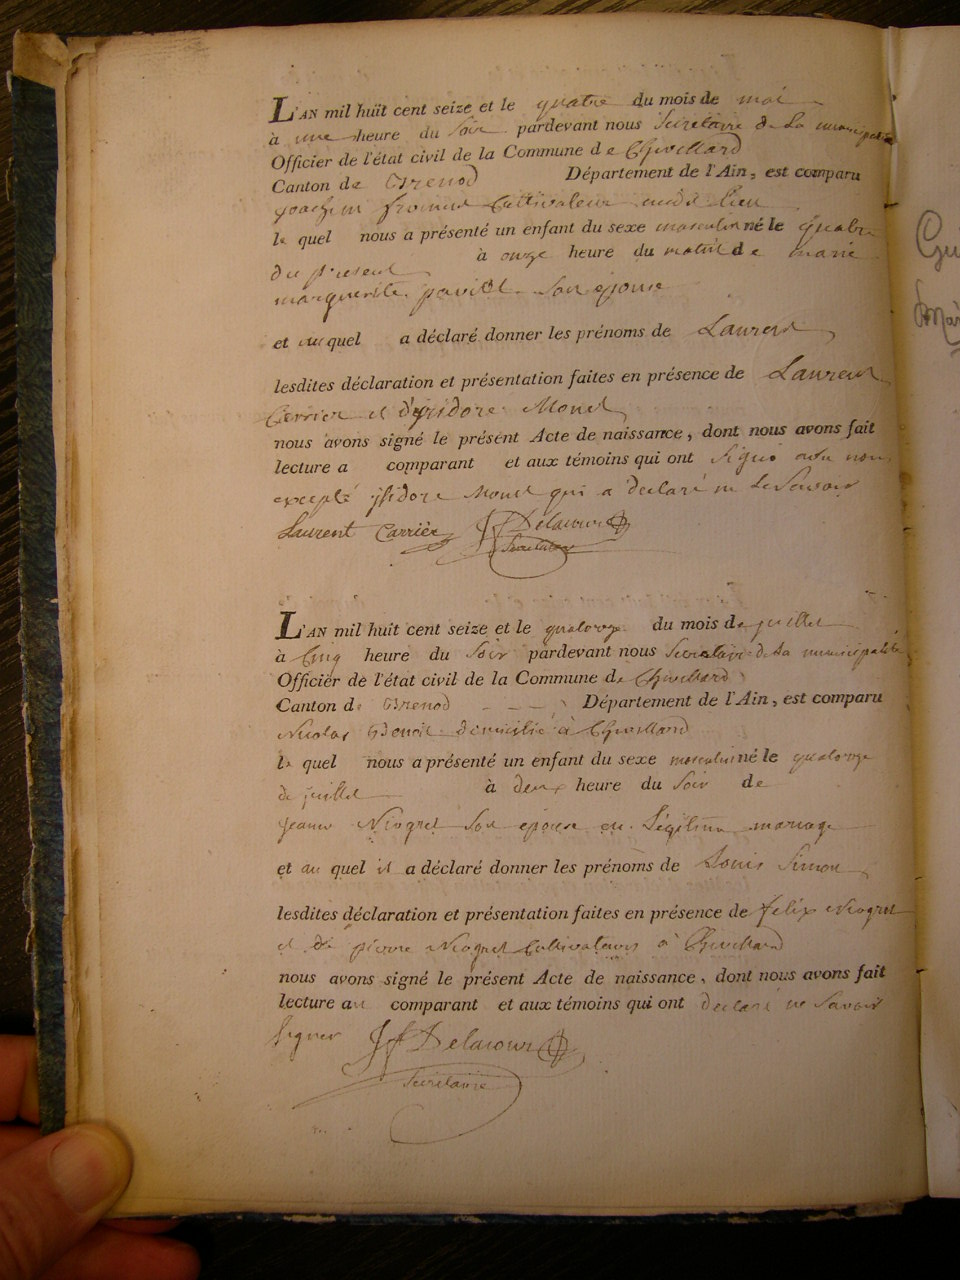 L'AN mil huit cent seize et le quatre du mois de mai
à une heure du Soir pardevant nous Secretaire de La municipalité
Officier de l'état civil de la Commune de Chevillard
Canton de Brenod Département de l'Ain, est comparu
joachim Cultivateur audit lieu
le quel nous a présenté un enfant du sexe masculin né le quatre
du présent à onze heure du matin de marie
marguerite Son epouse
et auquel a déclaré donner les prénoms de Laurent
lesdites déclaration et présentation faites en présence de Laurent
Carrier et d'ysidore Monet
nous avons signé le présent Acte de naissance, dont nous avons fait
lecture a comparant et aux témoins qui ont Signé avec nous
excepté ysidore Monet qui a declaré ne Le Savoir
Laurent Carrier Jf Delacour
Secretaire
L'AN mil huit cent seize et le quatorze du mois de juillet
à Cinq heure du Soir pardevant nous Secretaire de La municipalité
Officier de l'état civil de la Commune de Chevillard
Canton de Brenod Département de l'Ain, est comparu
Nicolas Benoit domicilié à Chevillard
le quel nous a présenté un enfant du sexe masculin né le quatorze
de juillet à deux heure du Soir de
jeanne Niogret Son epouse en Légitime mariage
et au quel il a déclaré donner les prénoms de Louis Simon
lesdites déclaration et présentation faites en présence de felix Niogret
et de pierre Niogret Cultivateurs à Chevillard
nous avons signé le présent Acte de naissance, dont nous avons fait
lecture au comparant et aux témoins qui ont declaré ne Savoir
Signer Jf Delacour
Secretaire